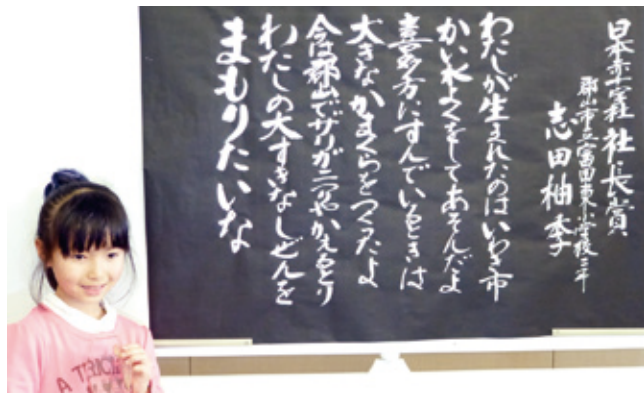 日本赤十字社社長賞
郡山市立富田東小学校二年
志田柚季
わたしが生まれたのはいわき市
かい水よくをしてあそんだよ
喜多方にすんでいるときは
大きなかまくらをつくったよ
今は郡山でザリガニやかえるとり
わたしの大すきなしぜんを
まもりたいな